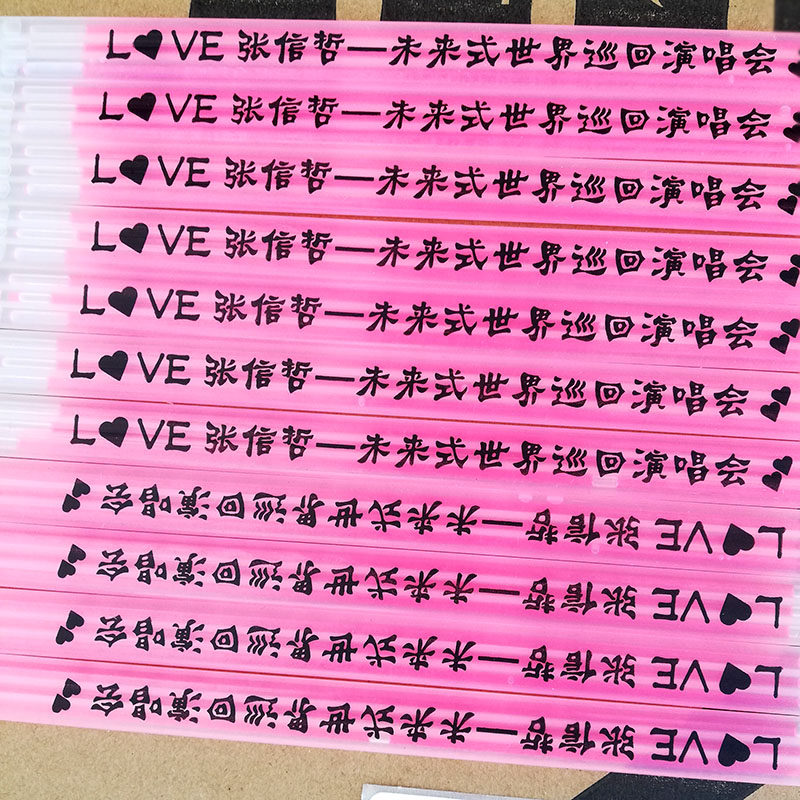 L♥VE 张信哲—未来式世界巡回演唱会
L♥VE 张信哲—未来式世界巡回演唱会
L♥VE 张信哲—未来式世界巡回演唱会
L♥VE 张信哲—未来式世界巡回演唱会
L♥VE 张信哲—未来式世界巡回演唱会
L♥VE 张信哲—未来式世界巡回演唱会
L♥VE 张信哲—未来式世界巡回演唱会
L♥VE 张信哲—未来式世界巡回演唱会
L♥VE 张信哲—未来式世界巡回演唱会
L♥VE 张信哲—未来式世界巡回演唱会
L♥VE 张信哲—未来式世界巡回演唱会